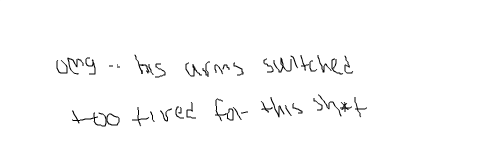 omg .. his arms switched
too tired for this sh*t